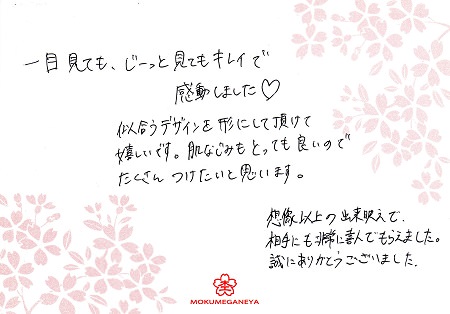 一目見ても、じーっと見てもキレイで
感動しました♡
似合うデザインを形にして頂けて
嬉しいです。肌なじみもとっても良いので
たくさんつけたいと思います。
想像以上の出来映えで、
相手にも非常に喜んでもらえました。
誠にありがとうございました。
MOKUMEGANEYA